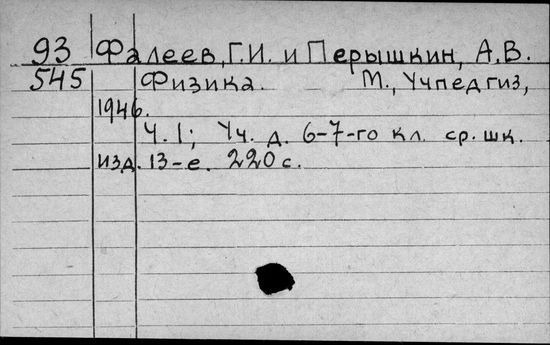 93 Фалеев, Г.И. и Перышкин, А.В.
545 Физика. М., Учпедгиз,
1946.
Ч.1; Уч. д. 6-7-го кл. ср. шк.
изд. 13-е. 220 с.